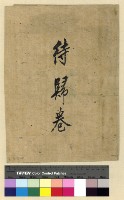 待歸卷
Color Control Patches